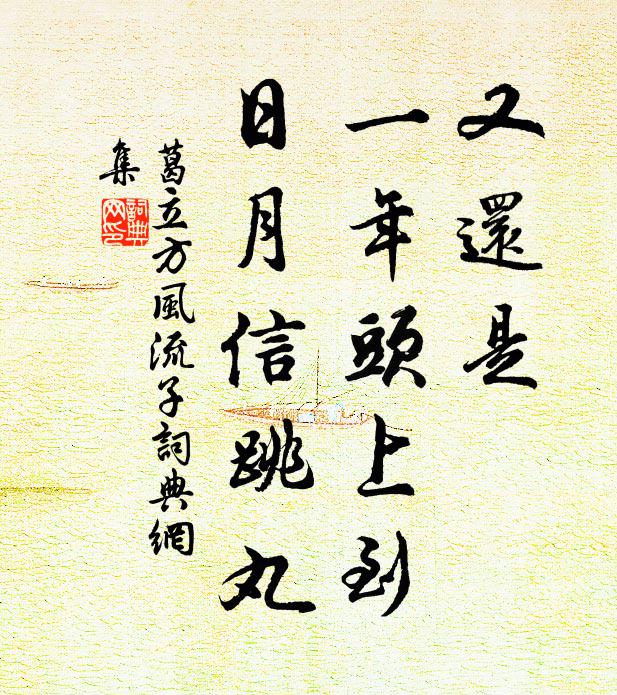 又還是
一年頭上到
日月信跳丸
葛立方風流子詞典網
集
詞典
网印